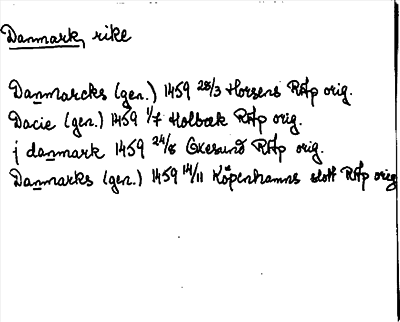 Danmark, rike
Danmarcks (gen.) 1459 28/3 Horsens RAp orig.
Dacie (gen.) 1459 1/7 Holbæk RAp orig.
j danmark 1459 24/8 Oxesund RAp orig.
Danmarks (gen.) 1459 14/11 Köpenhamns slott RAp orig